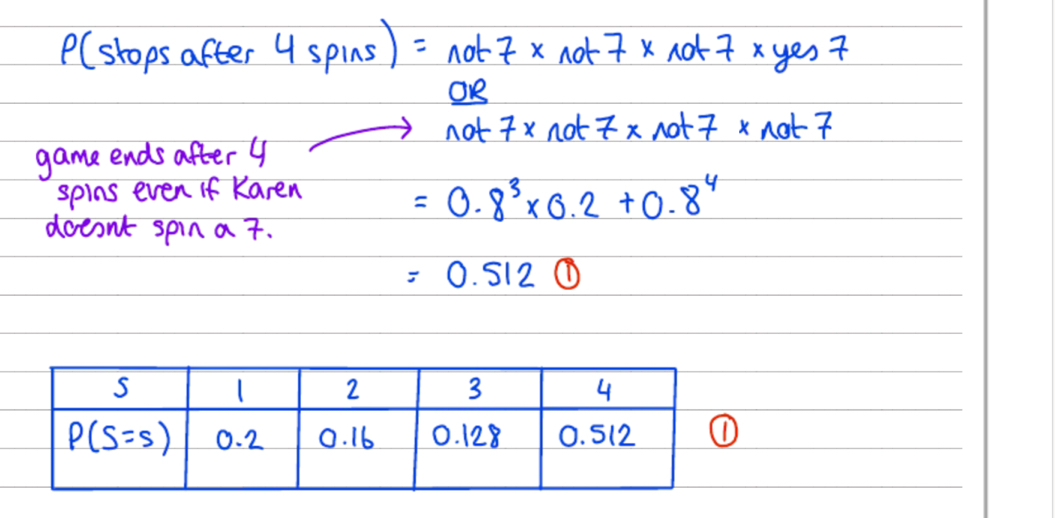 P(stops after 4 spins) = not 7 × not 7 × not 7 × yes 7
OR
not 7 × not 7 × not 7 × not 7
game ends after 4
spins even if Karen
doesnt spin a 7.
= 0.8³ × 0.2 + 0.8⁴
= 0.512 ①
S 1 2 3 4
P(S=s) 0.2 0.16 0.128 0.512 ①